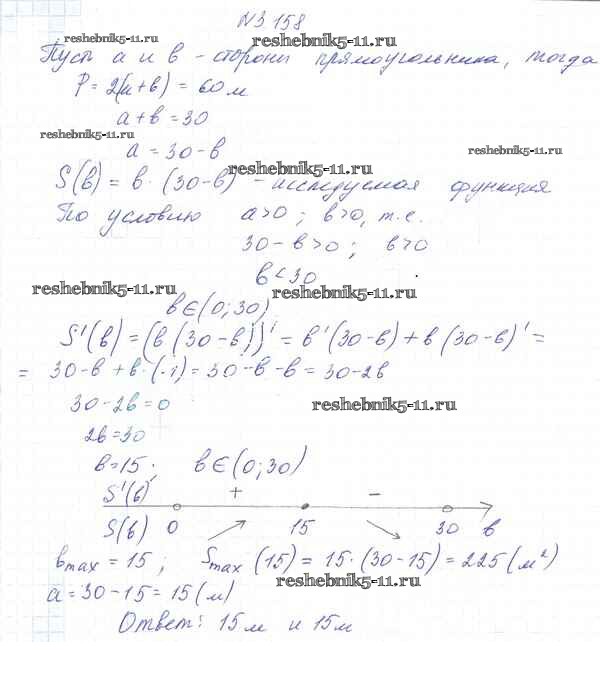 №3 158
reshebnik5-11.ru
Пусть a и b - стороны прямоугольника, тогда
P = 2(a+b) = 60 м
a + b = 30
reshebnik5-11.ru
a = 30 - b
reshebnik5-11.ru
reshebnik5-11.ru
S(b) = b · (30-b) - исследуемая функция
По условию a>0 ; b>0, т.е.
30 - b > 0 ; b>0
b < 30
reshebnik5-11.ru
reshebnik5-11.ru
b∈(0;30)
S'(b) = (b(30-b))' = b'(30-b) + b(30-b)' =
= 30-b + b·(-1) = 30-b-b = 30-2b
30-2b=0
reshebnik5-11.ru
2b=30
b=15 ; b∈(0;30)
S'(b) + -
S(b) 0 15 30 b
bmax = 15 ; Smax (15) = 15·(30-15) = 225 (м²)
reshebnik5-11.ru
a = 30-15 = 15 (м)
Ответ: 15м и 15м